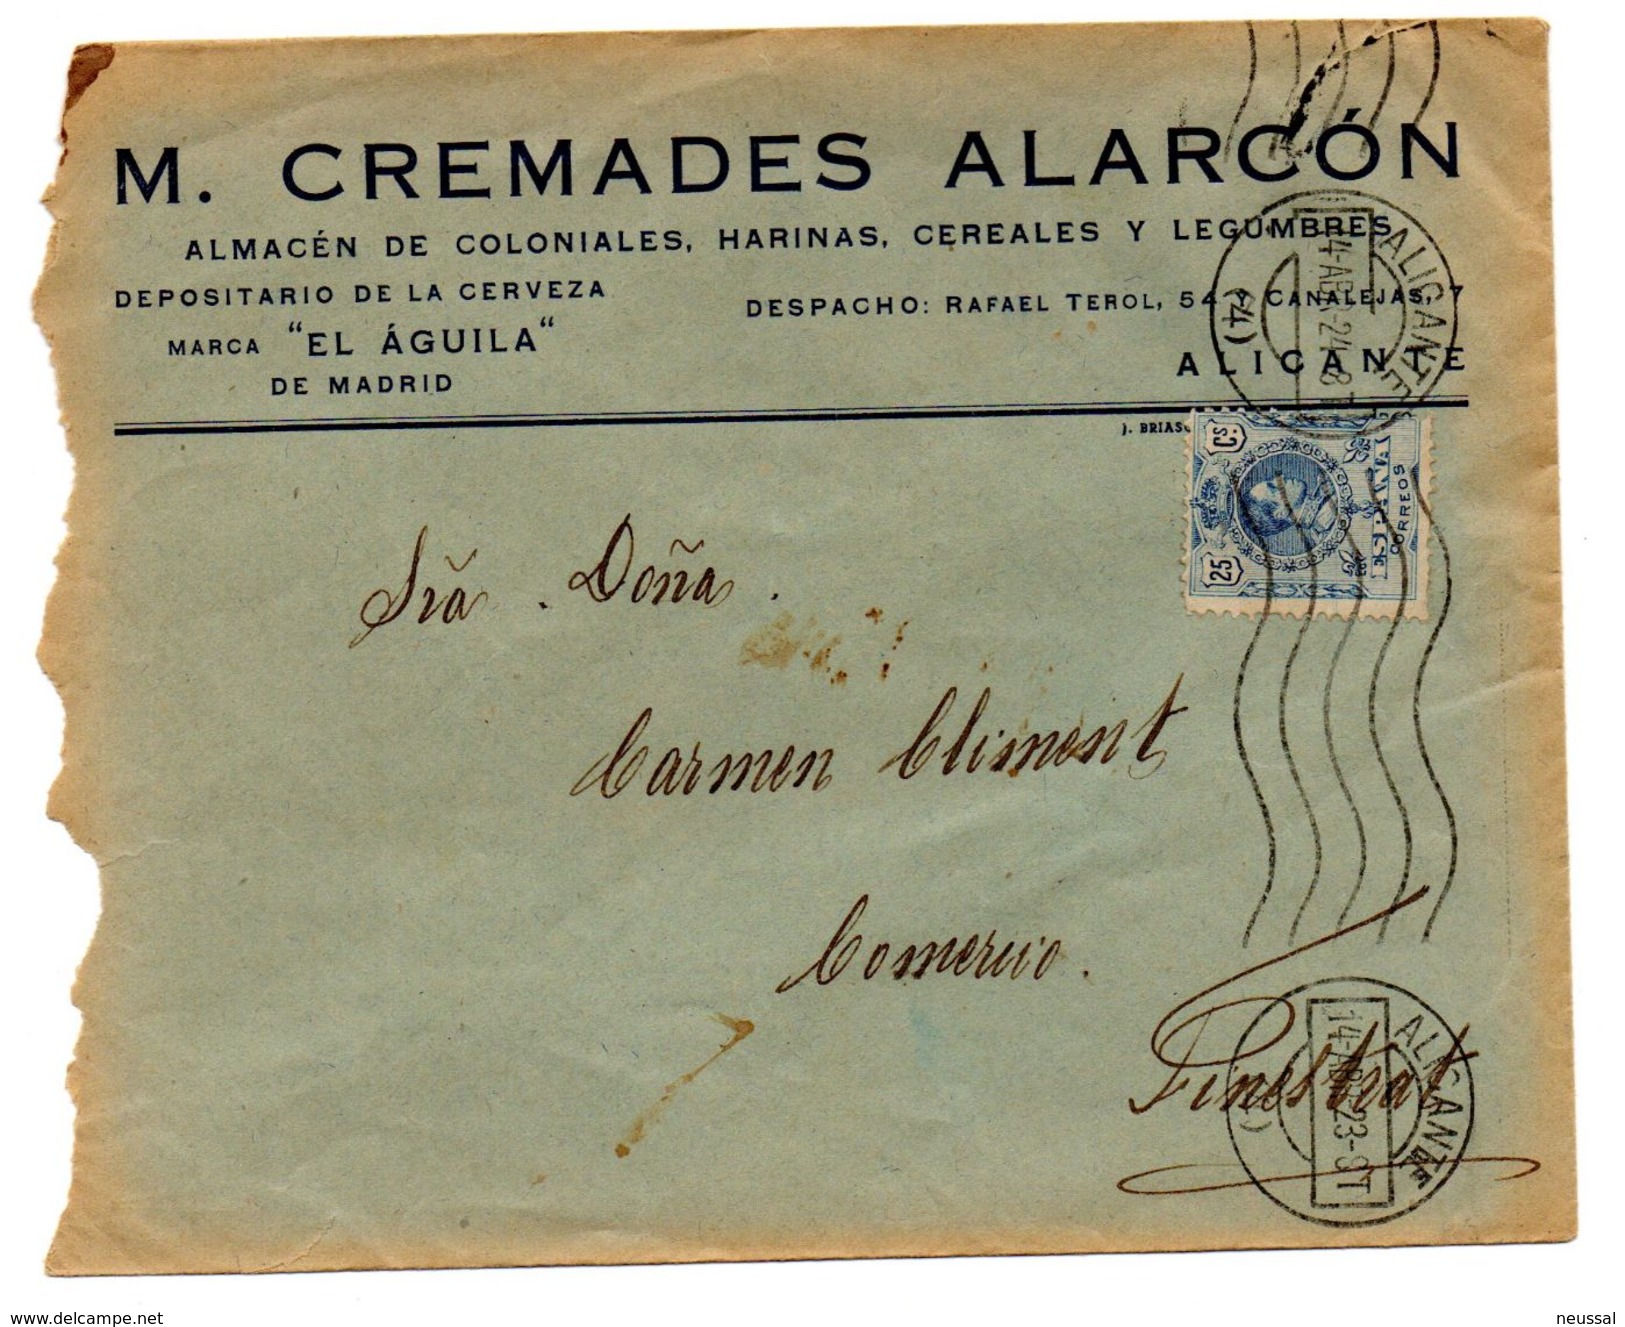 M. CREMADES ALARCÓN
ALMACÉN DE COLONIALES, HARINAS, CEREALES Y LEGUMBRES
DEPOSITARIO DE LA CERVEZA
MARCA "EL ÁGUILA"
DE MADRID
DESPACHO: RAFAEL TEROL, 54 Y CANALEJAS, 7
ALICANTE
J. BRIASC
ALICANTE
14-ABR-24-8T
(4)
25 Cs.
ESPAÑA
CORREOS
Srã. Doña.
Carmen Climent
Comercio.
Finestrat
ALICANTE
14-ABR-23-8T
neussal